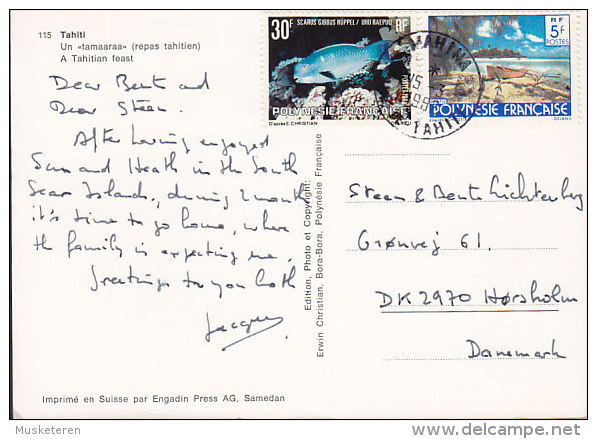 115 Tahiti
Un «tamaaraa» (repas tahitien)
A Tahitian feast
Dear Bent and
Dear Steen.
After having enjoyed
Sun and Heath in the South
Seas Islands, during 2 month
it's time to go home, where
the family is expecting me.
Greetings to you both
Jacques
Imprimé en Suisse par Engadin Press AG, Samedan
Edition, Photo et Copyright:
Erwin Christian, Bora-Bora, Polynésie Française
SCARUS GIBBUS RÜPPEL / UHU RAEPUU
30F RF
POSTES
POLYNÉSIE FRANÇAISE
D'après E. CHRISTIAN
RF
5F
POSTES
POLYNÉSIE FRANÇAISE
TAHITI
Steen & Bente Lichtenberg
Grønvej 61.
DK 2970 Hørsholm
Danemark
Musketeren
delcampe.net